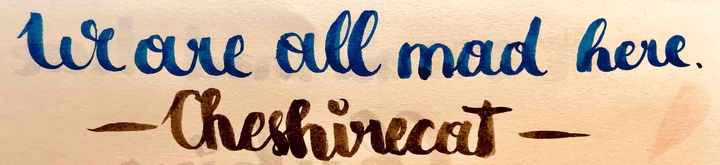 We are all mad here.
— Cheshirecat —